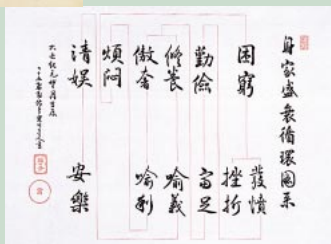 身家盛衰循環圖系
發憤
困窮
挫折
勤儉
富足
修養
喻義
傲奢
喻利
煩悶
清娛
安樂